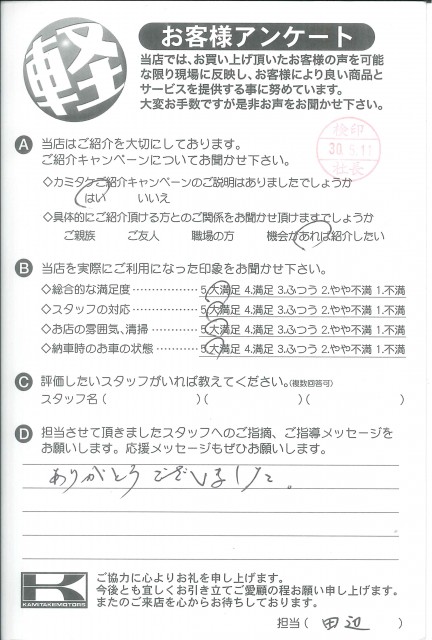 軽
お客様アンケート
当店では、お買い上げ頂いたお客様の声を可能
な限り現場に反映し、お客様により良い商品と
サービスを提供する事に努めています。
大変お手数ですが是非お声をお聞かせ下さい。
A 当店はご紹介を大切にしております。
ご紹介キャンペーンについてお聞かせ下さい。
検印
社長
◇カミタケご紹介キャンペーンのご説明はありましたでしょうか
はい いいえ
◇具体的にご紹介頂ける方とのご関係をお聞かせ頂けますでしょうか
ご親族 ご友人 職場の方 機会があれば紹介したい
B 当店を実際にご利用になった印象をお聞かせ下さい。
◇総合的な満足度……………5.大満足 4.満足 3.ふつう 2.やや不満 1.不満
◇スタッフの対応……………5.大満足 4.満足 3.ふつう 2.やや不満 1.不満
◇お店の雰囲気、清掃…………5.大満足 4.満足 3.ふつう 2.やや不満 1.不満
◇納車時のお車の状態…………5.大満足 4.満足 3.ふつう 2.やや不満 1.不満
C 評価したいスタッフがいれば教えてください。(複数回答可)
スタッフ名( )( )( )
D 担当させて頂きましたスタッフへのご指摘、ご指導メッセージを
お願いします。応援メッセージもぜひお願いします。
ありがとうございました。
K
KAMITAKEMOTORS
ご協力に心よりお礼を申し上げます。
今後とも宜しくお引き立てご愛顧の程お願い申し上げます。
またのご来店を心からお待ちしております。
担当( 田辺 )